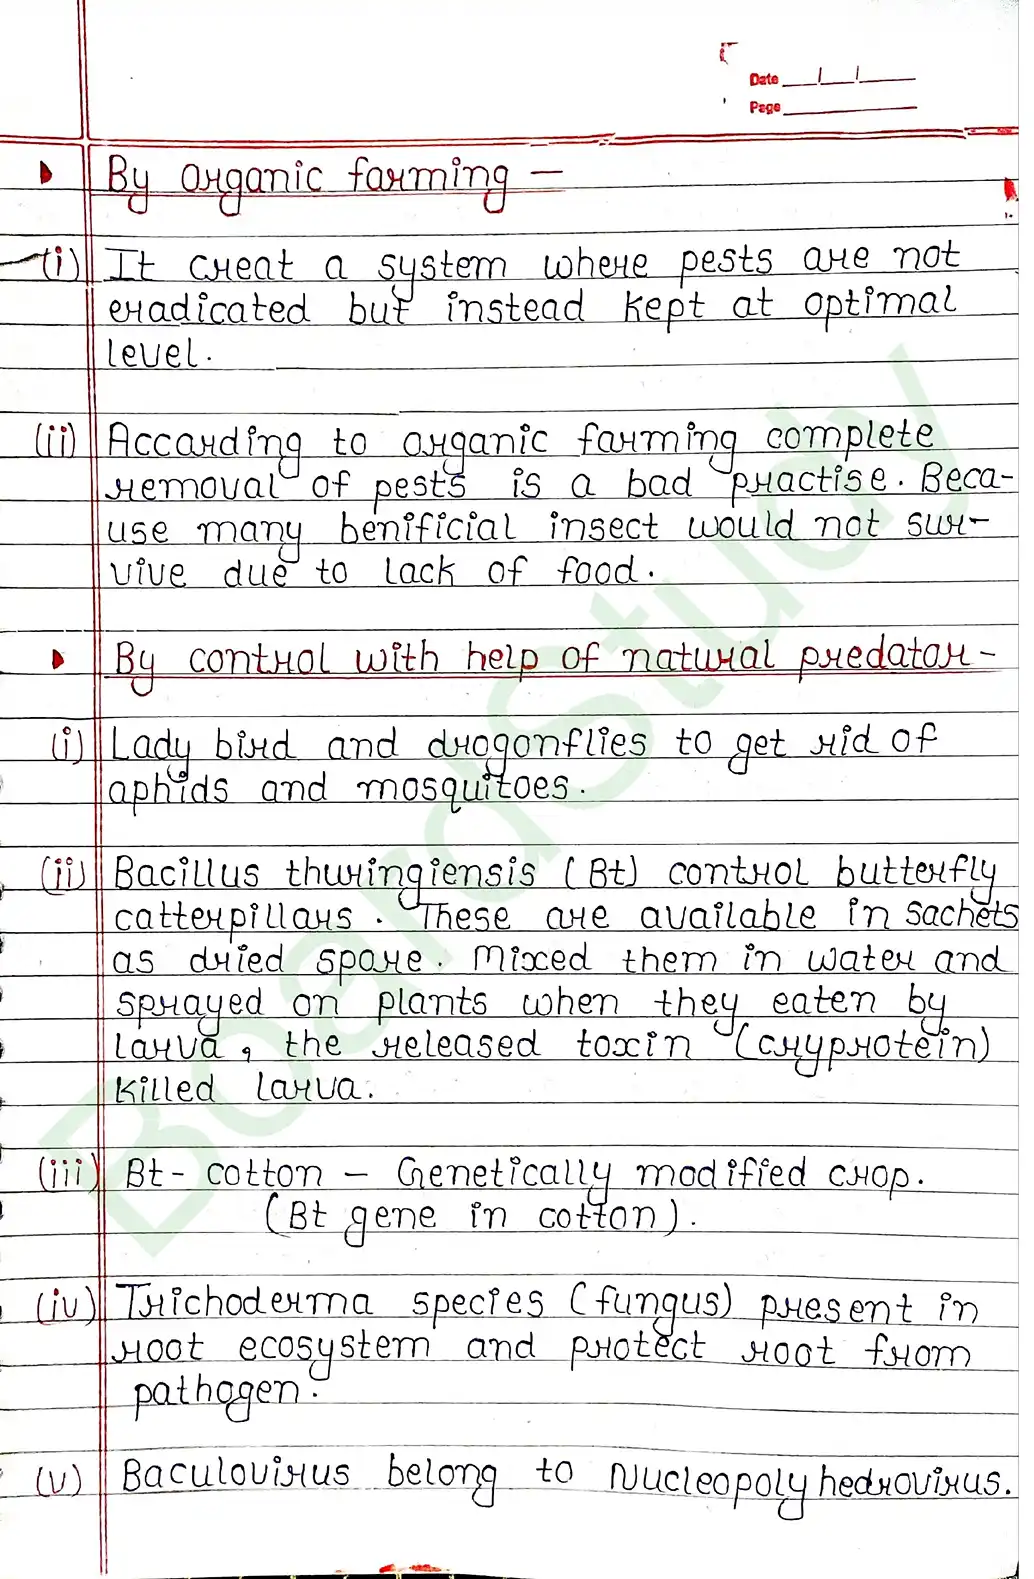 Date
Page
By organic farming —
(i) It creat a system where pests are not
eradicated but instead kept at optimal
level.
(ii) According to organic farming complete
removal of pests is a bad practise. Beca-
use many benificial insect would not sur-
vive due to lack of food.
By control with help of natural predator-
(i) Lady bird and dragonflies to get rid of
aphids and mosquitoes.
(ii) Bacillus thuringiensis (Bt) control butterfly
catterpillars. These are available in sachets
as dried spore. Mixed them in water and
sprayed on plants when they eaten by
larva, the released toxin (cryprotein)
killed larva.
(iii) Bt- cotton — Genetically modified crop.
(Bt gene in cotton).
(iv) Trichoderma species (fungus) present in
root ecosystem and protect root from
pathogen.
(v) Baculovirus belong to Nucleopolyhedrovirus.
BoardStudy